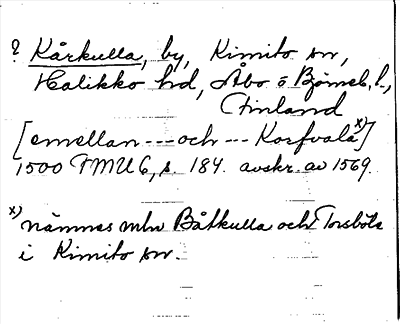 ? Kårkulla, by, Kimito sn,
Halikko hd, Åbo o Björneb. l.,
Finland
[emellan --- och --- Korfvala x)]
1500 FMU 6, s. 184. avskr. av 1569.
x) nämnes mln Båtkulla och Torsböle
i Kimito sn.